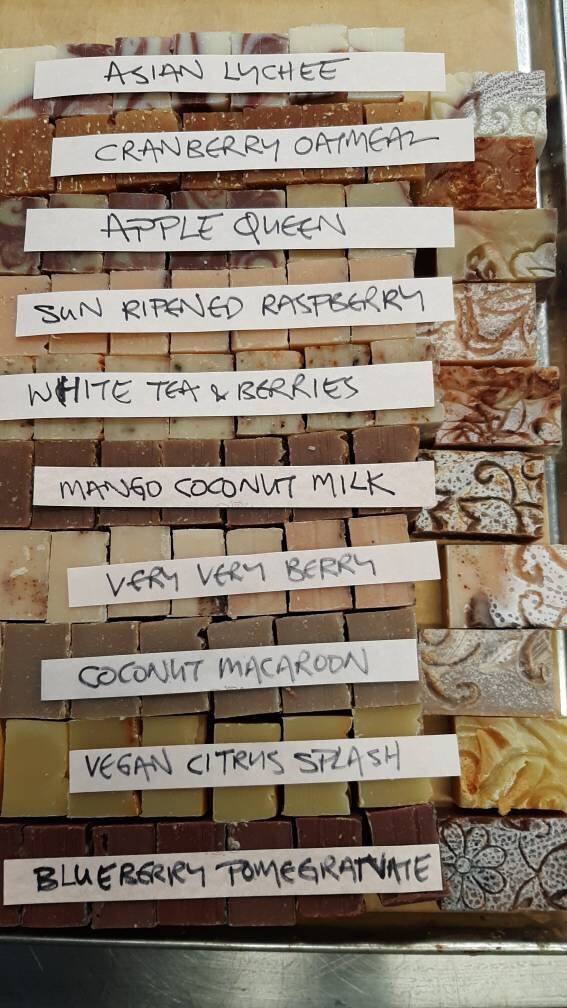 ASIAN LYCHEE
CRANBERRY OATMEAL
APPLE QUEEN
SUN RIPENED RASPBERRY
WHITE TEA & BERRIES
MANGO COCONUT MILK
VERY VERY BERRY
COCONUT MACAROON
VEGAN CITRUS SPLASH
BLUEBERRY POMEGRATNATE